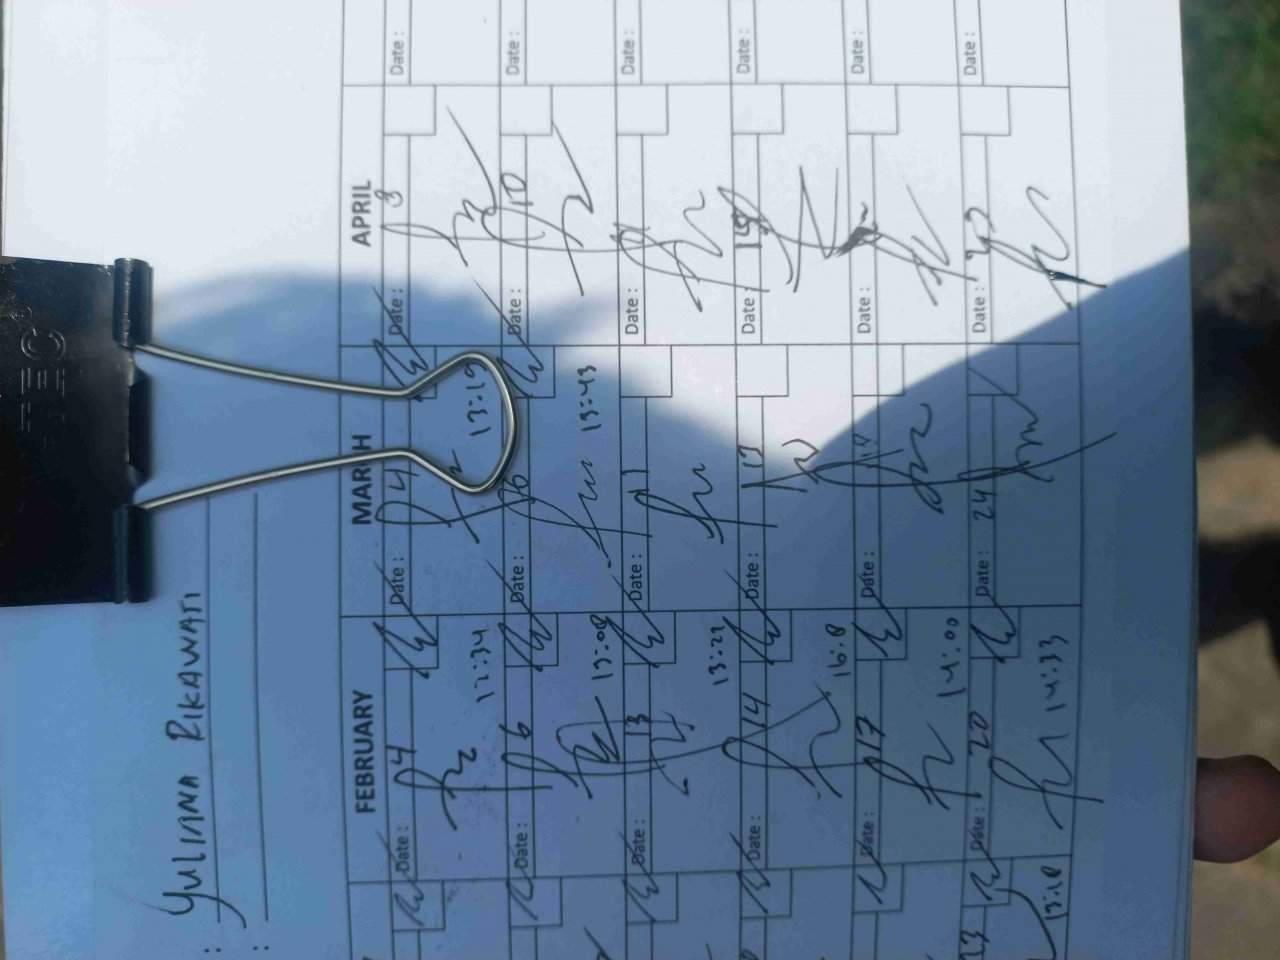 : YULIANA RIKAWATI
:
FEBRUARY MARCH APRIL
Date : 4 Date : 4 Date : 8 Date :
12:34 13:19
Date : 6 Date : 6 Date : 10 Date :
13:08 13:43
Date : 13 Date : 11 Date : Date :
13:22
Date : 14 Date : 13 Date : Date :
16:8
Date : 17 Date : Date : Date :
14:00
13 Date : 20 Date : 24 Date : Date :
13:18 14:33
TEC